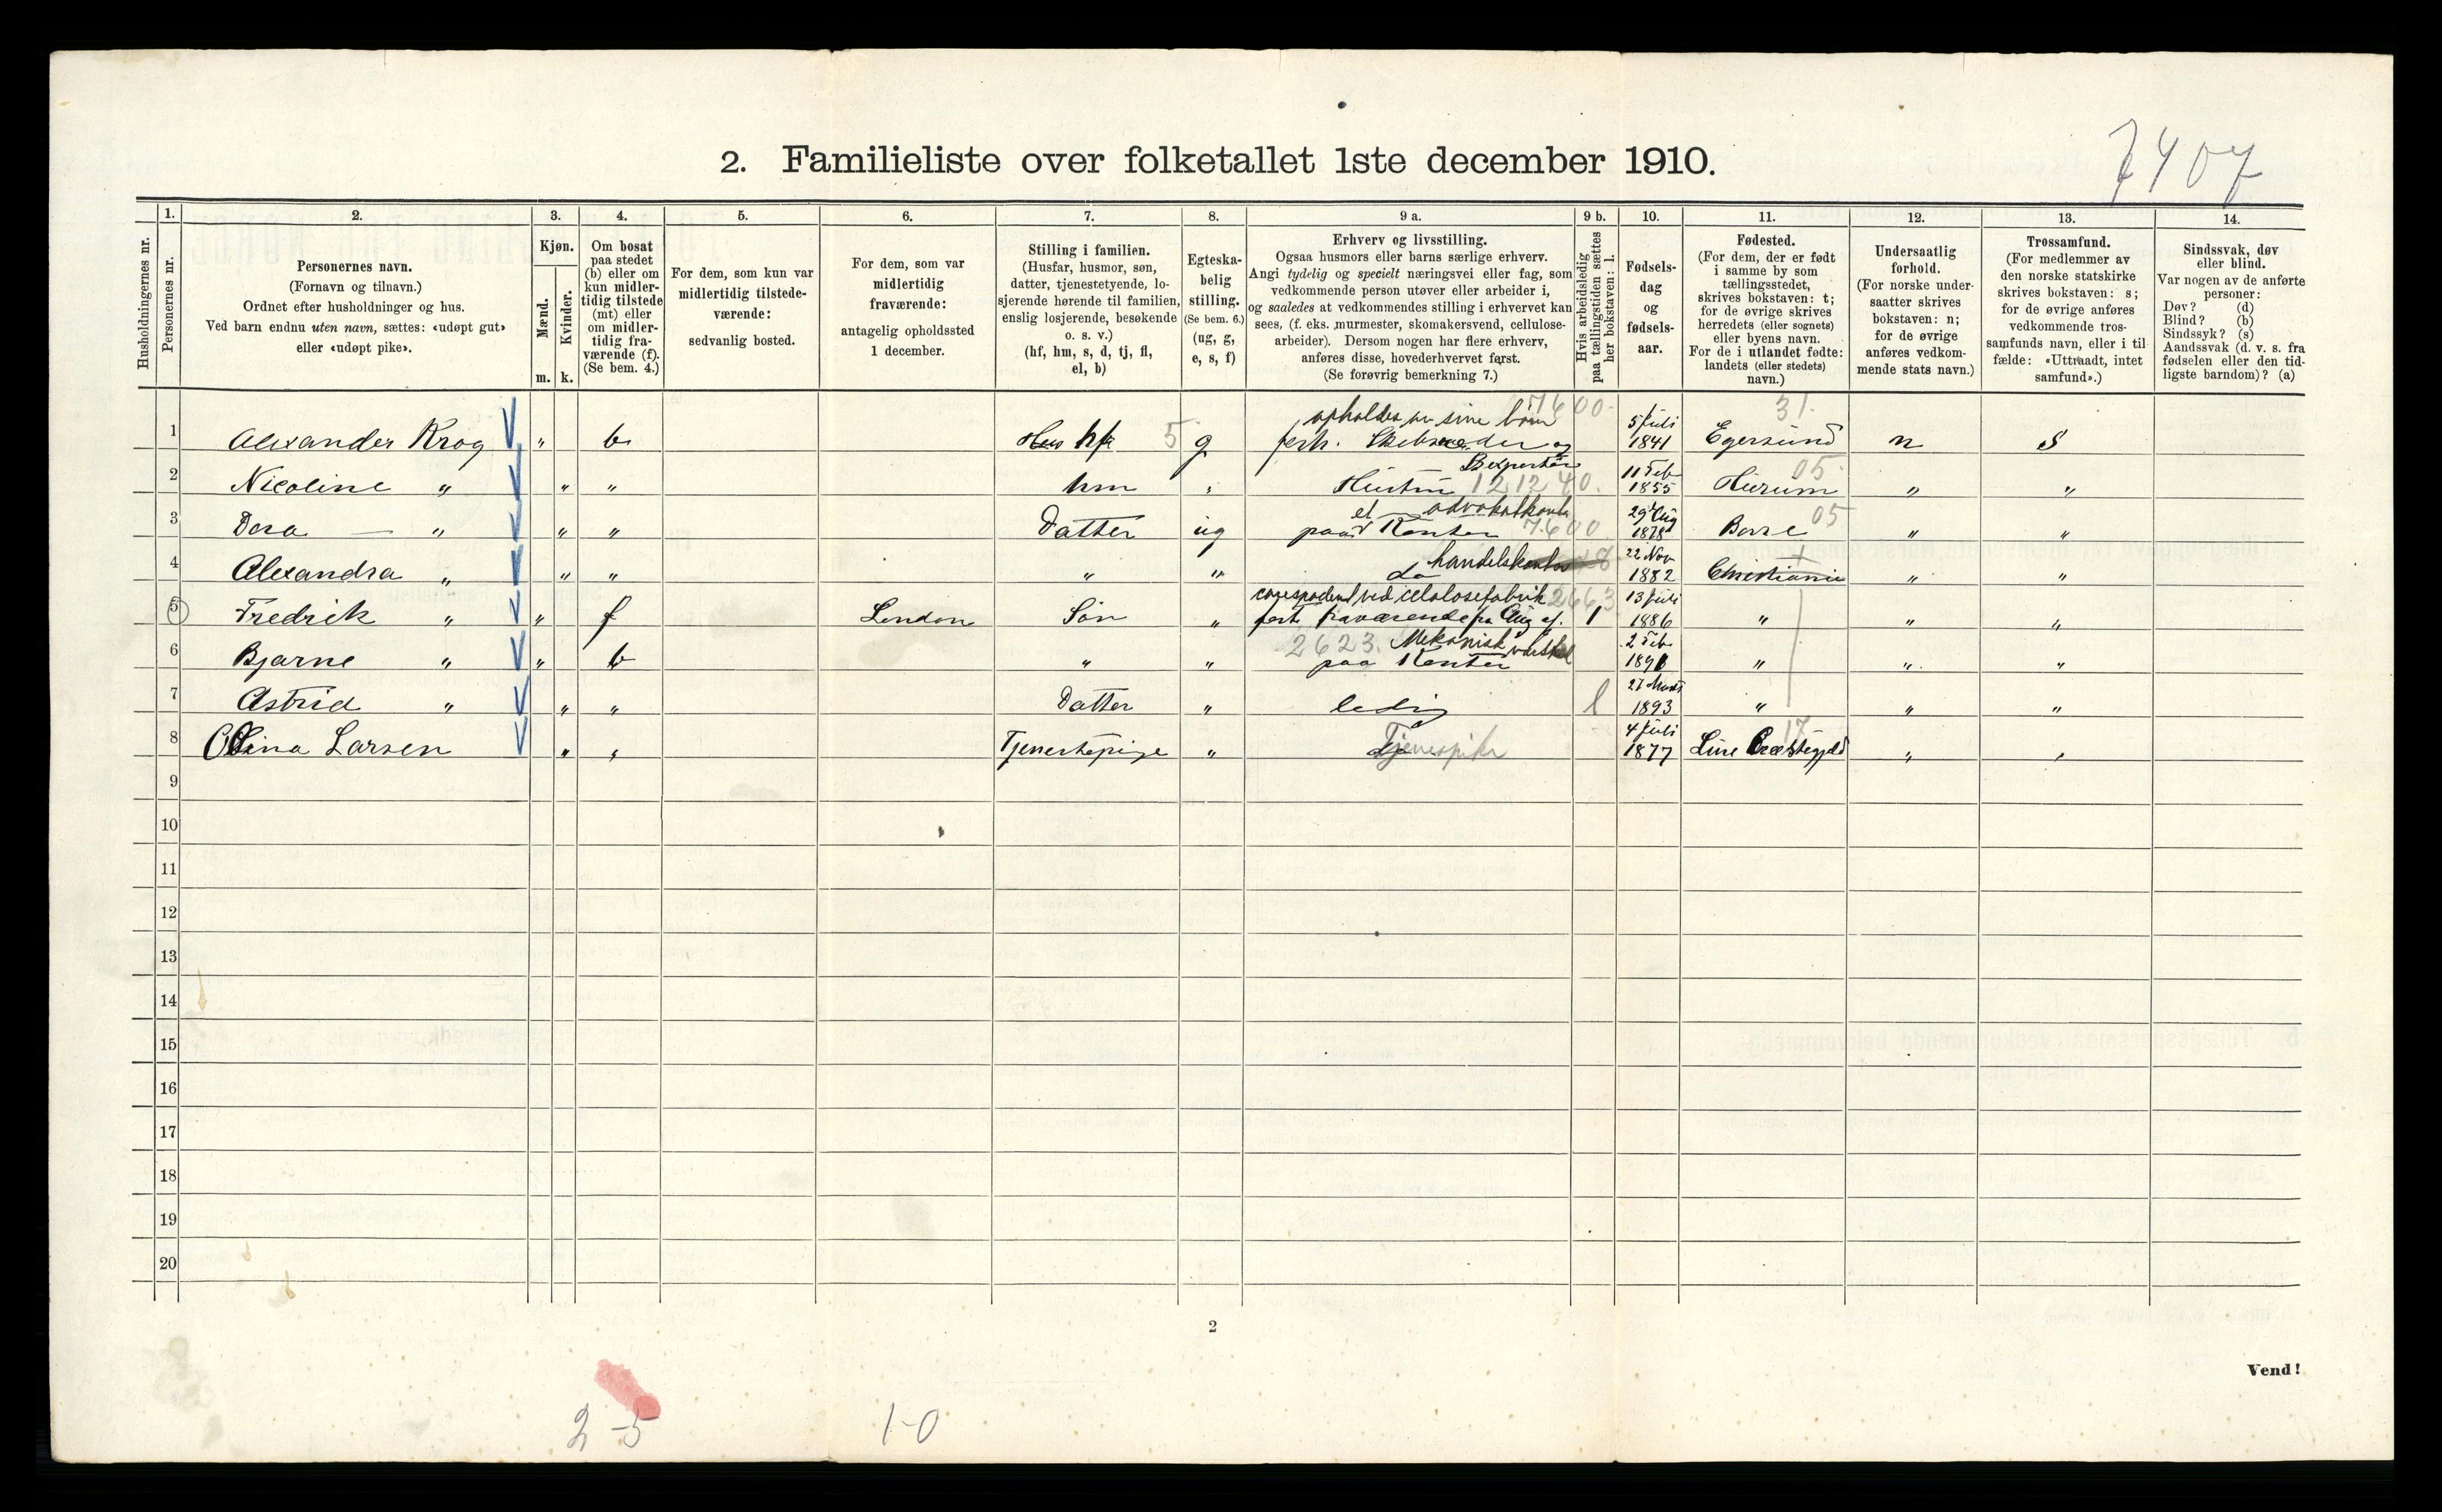 7407
2. Familieliste over folketallet 1ste december 1910.
Husholdningernes nr.
1. Personernes nr.
2. Personernes navn. (Fornavn og tilnavn.) Ordnet efter husholdninger og hus. Ved barn endnu uten navn, sættes: «udøpt gut» eller «udøpt pike».
3. Kjøn. Mænd. m. Kvinder. k.
4. Om bosat paa stedet (b) eller om kun midlertidig tilstede (mt) eller om midlertidig fraværende (f). (Se bem. 4.)
5. For dem, som kun var midlertidig tilstedeværende: sedvanlig bosted.
6. For dem, som var midlertidig fraværende: antagelig opholdssted 1 december.
7. Stilling i familien. (Husfar, husmor, søn, datter, tjenestetyende, losjerende hørende til familien, enslig losjerende, besøkende o. s. v.) (hf, hm, s, d, tj, fl, el, b)
8. Egteskabelig stilling. (Se bem. 6.) (ug, g, e, s, f)
9 a. Erhverv og livsstilling. Ogsaa husmors eller barns særlige erhverv. Angi tydelig og specielt næringsvei eller fag, som vedkommende person utøver eller arbeider i, og saaledes at vedkommendes stilling i erhvervet kan sees, (f. eks. murmester, skomakersvend, cellulosearbeider). Dersom nogen har flere erhverv, anføres disse, hovederhvervet først. (Se forøvrig bemerkning 7.)
9 b. Hvis arbeidsledig paa tællingstiden sættes her bokstaven: l.
10. Fødselsdag og fødselsaar.
11. Fødested. (For dem, der er født i samme by som tællingsstedet, skrives bokstaven: t; for de øvrige skrives herredets (eller sognets) eller byens navn. For de i utlandet fødte: landets (eller stedets) navn.)
12. Undersaatlig forhold. (For norske undersaatter skrives bokstaven: n; for de øvrige anføres vedkommende stats navn.)
13. Trossamfund. (For medlemmer av den norske statskirke skrives bokstaven: s; for de øvrige anføres vedkommende trossamfunds navn, eller i tilfælde: «Uttraadt, intet samfund».)
14. Sindssvak, døv eller blind. Var nogen av de anførte personer: Døv? (d) Blind? (b) Sindssyk? (s) Aandssvak (d. v. s. fra fødselen eller den tidligste barndom)? (a)
1 Alexander Krog " b hf 5 g opholdes av sine børn 7600 forh. og 5 Juli 1841 Egersund 31 n S
2 Nicoline " " " hm " Hustru 121240. 11 Feb 1855 Hurum 05 " "
3 Dora — " " " Datter ug paa et advokatkontor Kontor 7600 29 Aug 1878 Borre 05 " "
4 Alexandra " " " " " do handelskontor 22 Nov 1882 Christiania " "
5 Fredrik " " f London Søn " corespodent ved celulosefabrik 2663 fort. fraværende fra Aug af. 1 13 Juli 1886 " " "
6 Bjarne " " b " " 2623. Mekanisk paa Kontor 2 Feb 1890 " " "
7 Astrid " " " Datter " ledig l 27 Marts 1893 " " "
8 Olina Larsen " " Tjenestepige " Tjenespike 4 Juli 1877 17 " "
9
10
11
12
13
14
15
16
17
18
19
20
2
Vend!
2-5
1-0